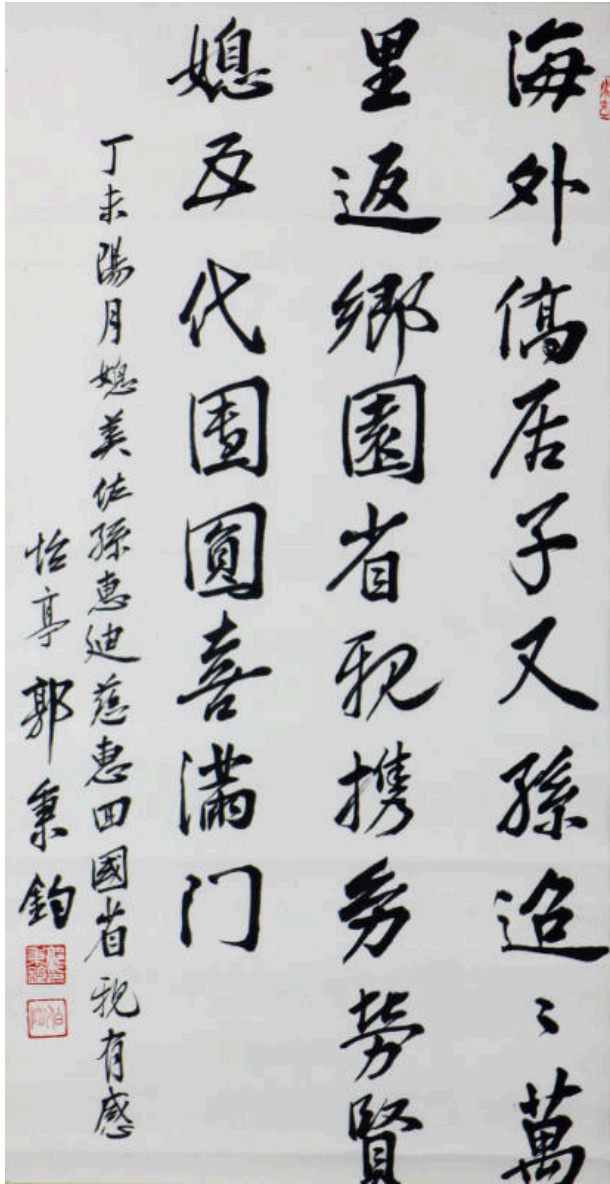 海外僑居子又孫迢〻萬
里返鄉園省親携勞賢
媳五代團圓喜滿门
丁未陽月媳美佐孫惠迪慈惠回國省親有感
怡亭郭秉鈞